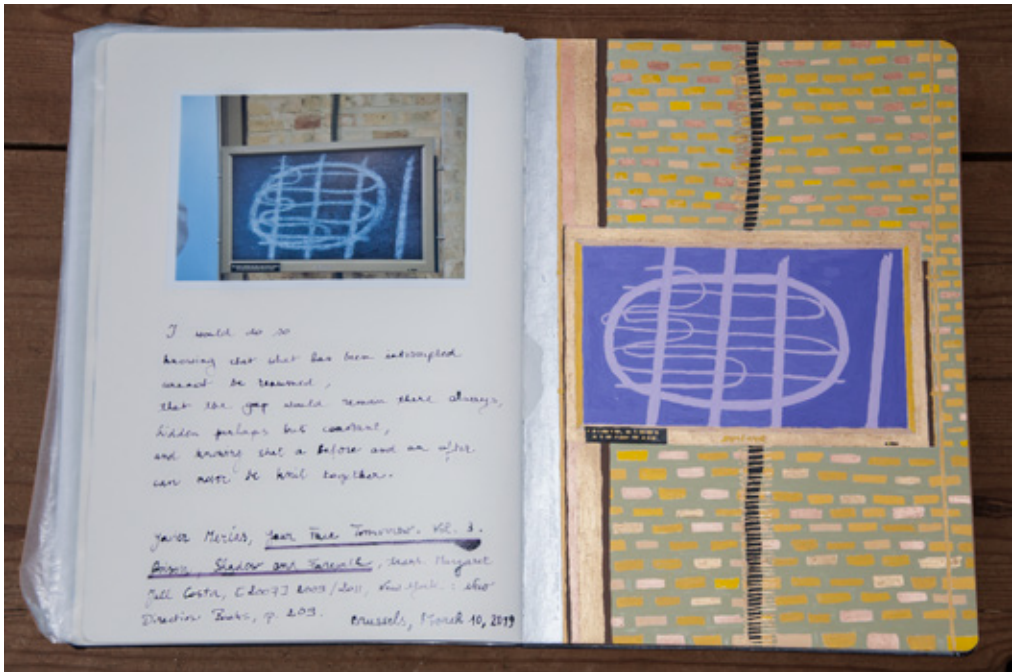 I would do so
knowing that what has been interrupted
cannot be resumed,
that the gap would remain there always,
hidden perhaps but constant,
and knowing that a before and an after
can never be knit together.
Javier Marías, Your Face Tomorrow. Vol. 3.
Poison, Shadow and Farewell, trans. Margaret
Jull Costa, [2007] 2009/2011, New York: New
Directions Books, p. 203.
Brussels, March 10, 2019